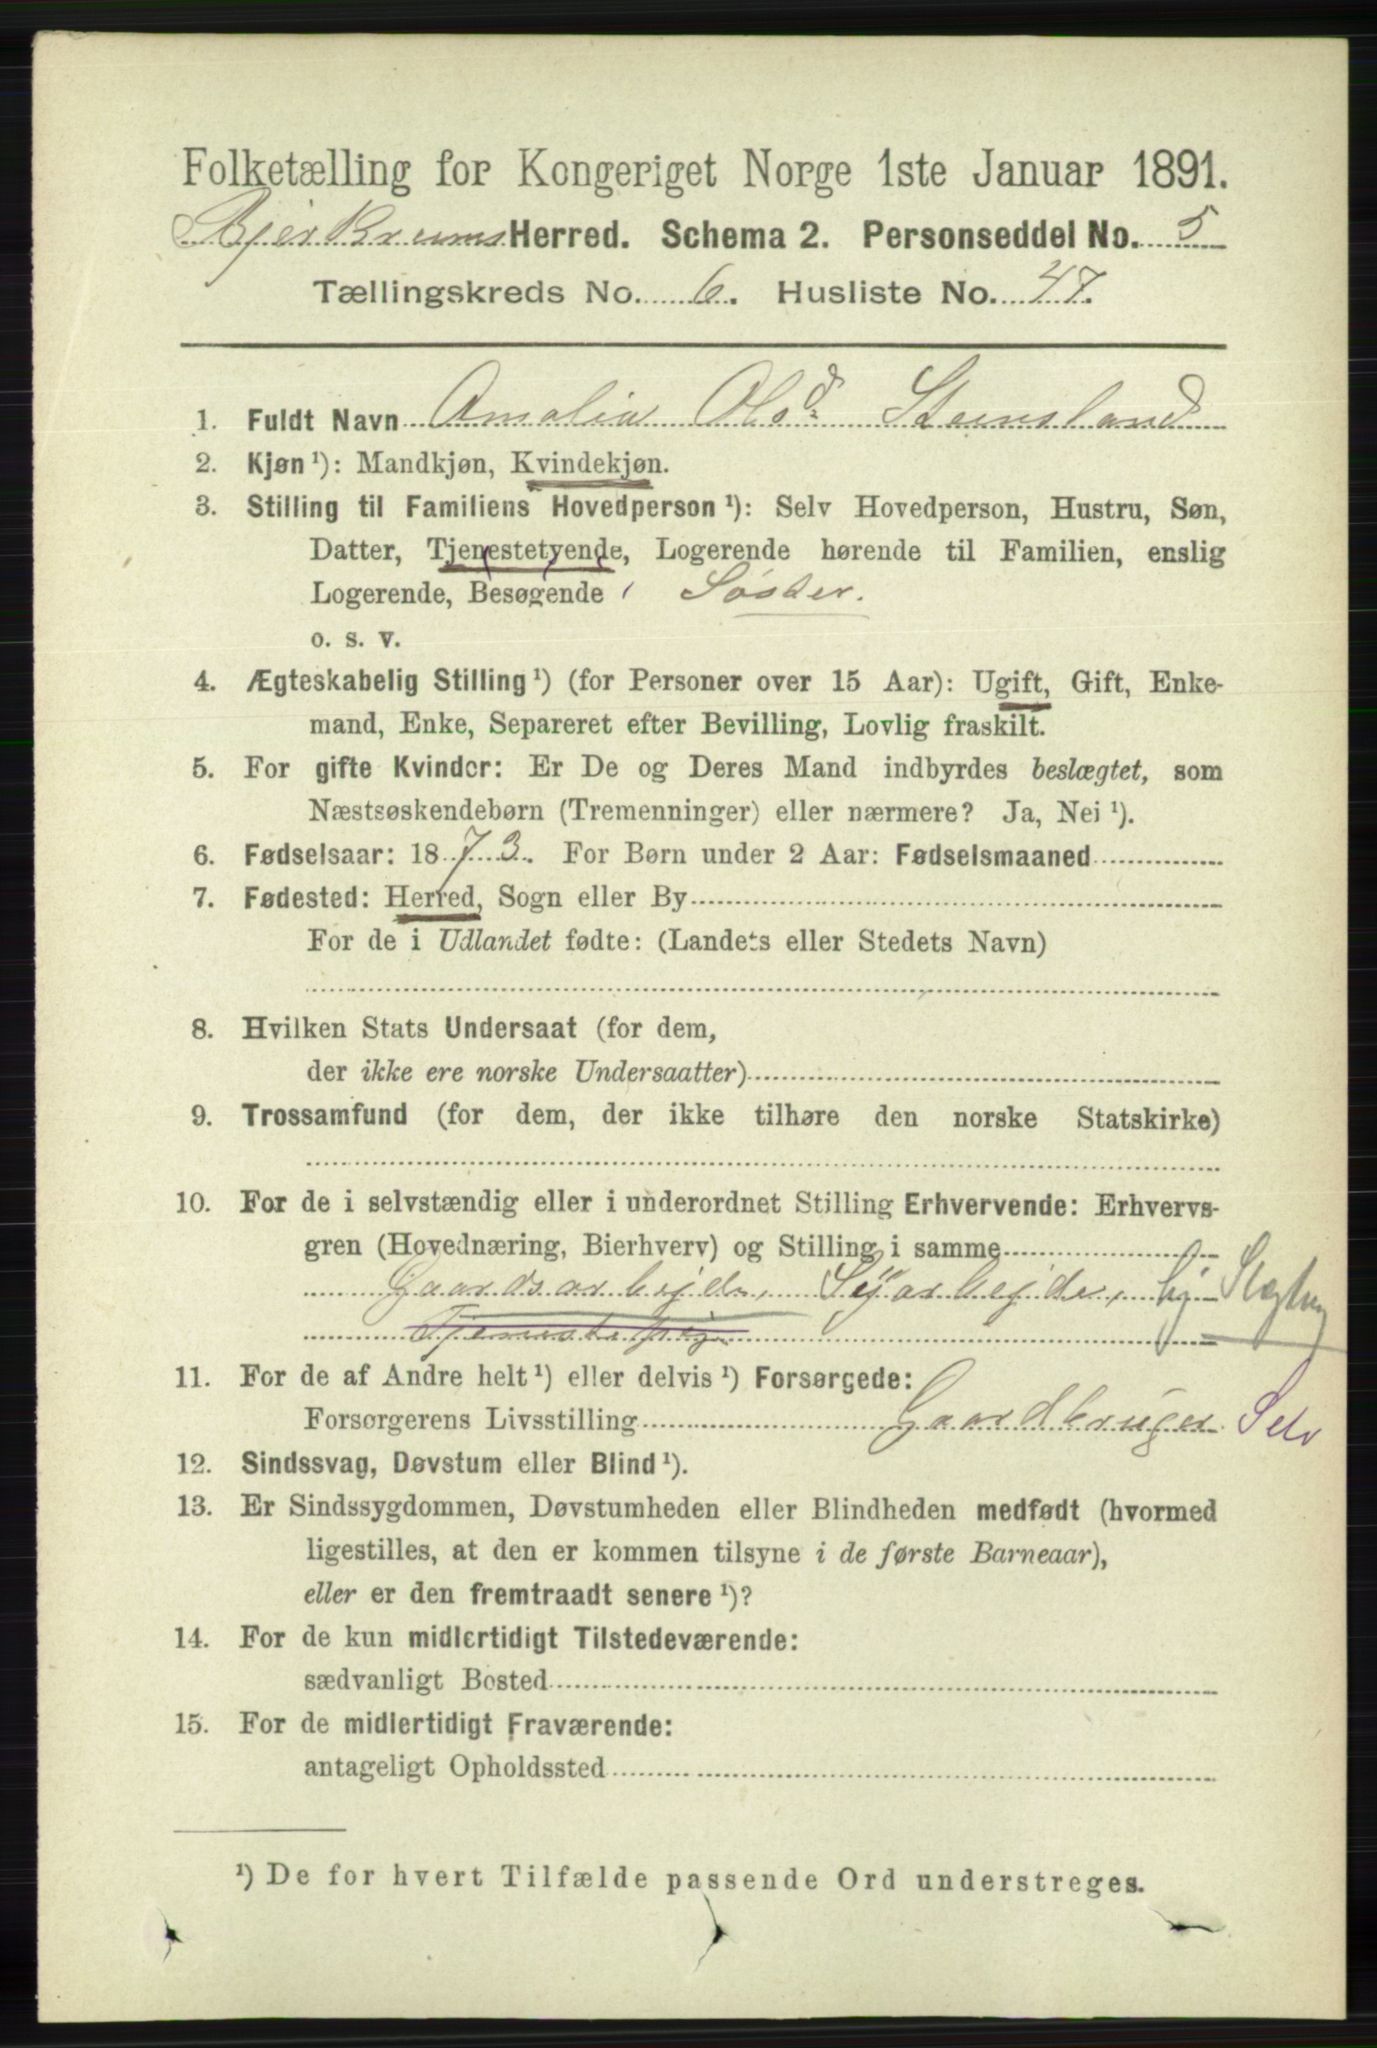 Folketælling for Kongeriget Norge 1ste Januar 1891.
Bjerkreims Herred. Schema 2. Personseddel No. 5
Tællingskreds No. 6. Husliste No. 47.
1. Fuldt Navn Amalia Olsd. Stensland
2. Kjøn ¹): Mandkjøn, Kvindekjøn.
3. Stilling til Familiens Hovedperson ¹): Selv Hovedperson, Hustru, Søn,
Datter, Tjenestetyende, Logerende hørende til Familien, enslig
Logerende, Besøgende Søster.
o. s. v.
4. Ægteskabelig Stilling ¹) (for Personer over 15 Aar): Ugift, Gift, Enke-
mand, Enke, Separeret efter Bevilling, Lovlig fraskilt.
5. For gifte Kvinder: Er De og Deres Mand indbyrdes beslægtet, som
Næstsøskendebørn (Tremenninger) eller nærmere? Ja, Nei ¹).
6. Fødselsaar: 1873. For Børn under 2 Aar: Fødselsmaaned
7. Fødested: Herred, Sogn eller By
For de i Udlandet fødte: (Landets eller Stedets Navn)
8. Hvilken Stats Undersaat (for dem,
der ikke ere norske Undersaatter)
9. Trossamfund (for dem, der ikke tilhøre den norske Statskirke)
10. For de i selvstændig eller i underordnet Stilling Erhvervende: Erhvervs-
gren (Hovednæring, Bierhverv) og Stilling i samme
Gaardsarbejde, Syarbejde, hj Slægtng
Tjenestepige
11. For de af Andre helt ¹) eller delvis ¹) Forsørgede:
Forsørgerens Livsstilling Gaardbruger Selv
12. Sindssvag, Døvstum eller Blind ¹).
13. Er Sindssygdommen, Døvstumheden eller Blindheden medfødt (hvormed
ligestilles, at den er kommen tilsyne i de første Barneaar),
eller er den fremtraadt senere ¹)?
14. For de kun midlertidigt Tilstedeværende:
sædvanligt Bosted
15. For de midlertidigt Fraværende:
antageligt Opholdssted
¹) De for hvert Tilfælde passende Ord understreges.